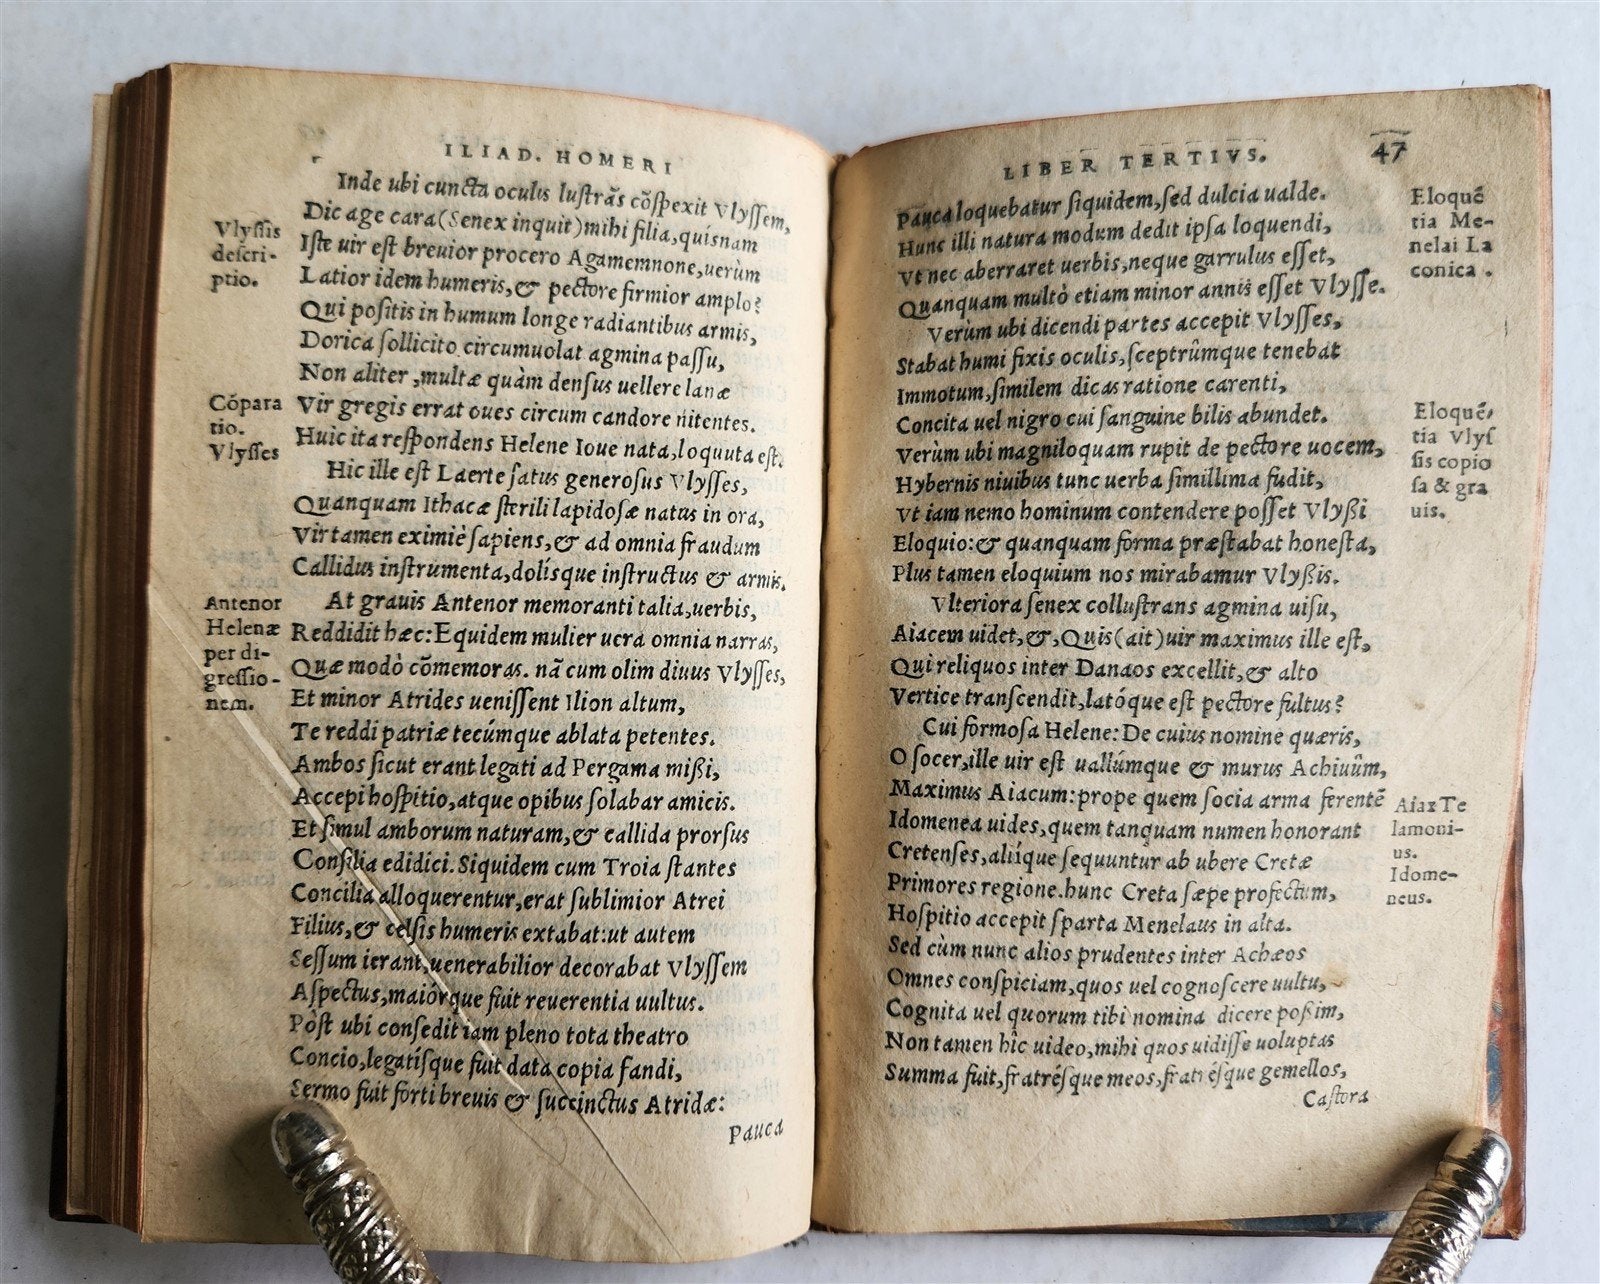 ILIAD. HOMERI
Inde ubi cuncta oculis luſtrãs cõſpexit Vlyſſem,
Dic age cara(Senex inquit)mihi filia,quiſnam
Iſte uir eſt breuior procero Agamemnone,uerùm
Latior idem humeris,& pectore firmior amplo?
Qui poſitis in humum longe radiantibus armis,
Dorica ſollicito circumuolat agmina paſſu,
Non aliter ,multæ quàm denſus uellere lanæ
Vir gregis errat oues circum candore nitentes.
Huic ita reſpondens Helene Ioue nata,loquuta eſt.
Hic ille eſt Laerte ſatus generoſus Vlyſſes,
Quanquam Ithacæ ſterili lapidoſæ natus in ora,
Vir tamen eximiè ſapiens,& ad omnia fraudum
Callidus inſtrumenta,doliſque inſtructus & armis.
At grauis Antenor memoranti talia,uerbis,
Reddidit hæc:Equidem mulier uera omnia narras,
Quæ modò cõmemoras. nã cum olim diuus Vlyſſes,
Et minor Atrides ueniſſent Ilion altum,
Te reddi patriæ tecúmque ablata petentes.
Ambos ſicut erant legati ad Pergama mißi,
Accepi hoſpitio,atque opibus ſolabar amicis.
Et ſimul amborum naturam,& callida prorſus
Conſilia edidici. Siquidem cum Troia ſtantes
Concilia alloquerentur,erat ſublimior Atrei
Filius,& celſis humeris extabat:ut autem
Seſſum ierant,uenerabilior decorabat Vlyſſem
Aſpectus,maiórque fuit reuerentia uultus.
Pòſt ubi conſedit iam pleno tota theatro
Concio,legatíſque fuit data copia fandi,
Sermo fuit forti breuis & ſuccinctus Atridæ:
Pauca
Vlyſſis
deſcri-
ptio.
Cõpara
tio.
Vlyſſes
Antenor
Helenæ
per di-
greſſio-
nem.
LIBER TERTIVS.
47
Pauca loquebatur ſiquidem,ſed dulcia ualde.
Hunc illi natura modum dedit ipſa loquendi,
Vt nec aberraret uerbis,neque garrulus eſſet,
Quanquam multò etiam minor annis eſſet Vlyſſe.
Verùm ubi dicendi partes accepit Vlyſſes,
Stabat humi fixis oculis,ſceptrûmque tenebat
Immotum,ſimilem dicas ratione carenti,
Concita uel nigro cui ſanguine bilis abundet.
Verùm ubi magniloquam rupit de pectore uocem,
Hybernis niuibus tunc uerba ſimillima fudit,
Vt iam nemo hominum contendere poſſet Vlyßi
Eloquio:& quanquam forma præſtabat honeſta,
Plus tamen eloquium nos mirabamur Vlyßis.
Vlteriora ſenex colluſtrans agmina uiſu,
Aiacem uidet,&,Quis(ait)uir maximus ille eſt,
Qui reliquos inter Danaos excellit,& alto
Vertice tranſcendit,latóque eſt pectore fultus?
Cui formoſa Helene: De cuius nomine quæris,
O ſocer,ille uir eſt uallúmque & murus Achiuûm,
Maximus Aiacum:prope quem ſocia arma ferentẽ
Idomenea uides,quem tanquam numen honorant
Cretenſes,aliíque ſequuntur ab ubere Cretæ
Primores regione.hunc Creta ſæpe profectum,
Hoſpitio accepit ſparta Menelaus in alta.
Sed cùm nunc alios prudentes inter Achæos
Omnes conſpiciam,quos uel cognoſcere uultu,
Cognita uel quorum tibi nomina dicere poßim,
Non tamen hîc uideo,mihi quos uidiſſe uoluptas
Summa fuit,fratréſque meos,fratréſque gemellos,
Caſtora
Eloquẽ
tia Me-
nelai La
conica .
Eloquẽ
tia Vlyſ
ſis copio
ſa & gra
uis.
Aiax Te
lamoni-
us.
Idome-
neus.